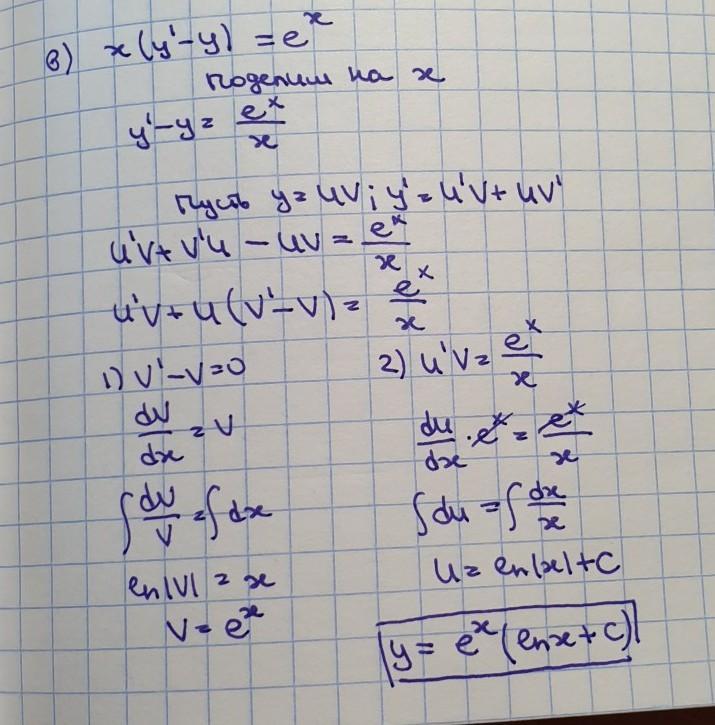 в) x(y'-y) = e^x
поделим на x
y'-y = e^x/x
Пусть y = uv; y' = u'v + uv'
u'v + v'u - uv = e^x/x
u'v + u(v'-v) = e^x/x
1) v'-v=0
dv/dx = v
∫ dv/v = ∫ dx
ln|v| = x
v = e^x
2) u'v = e^x/x
du/dx · e^x = e^x/x
∫ du = ∫ dx/x
u = ln|x| + C
y = e^x (ln x + C)